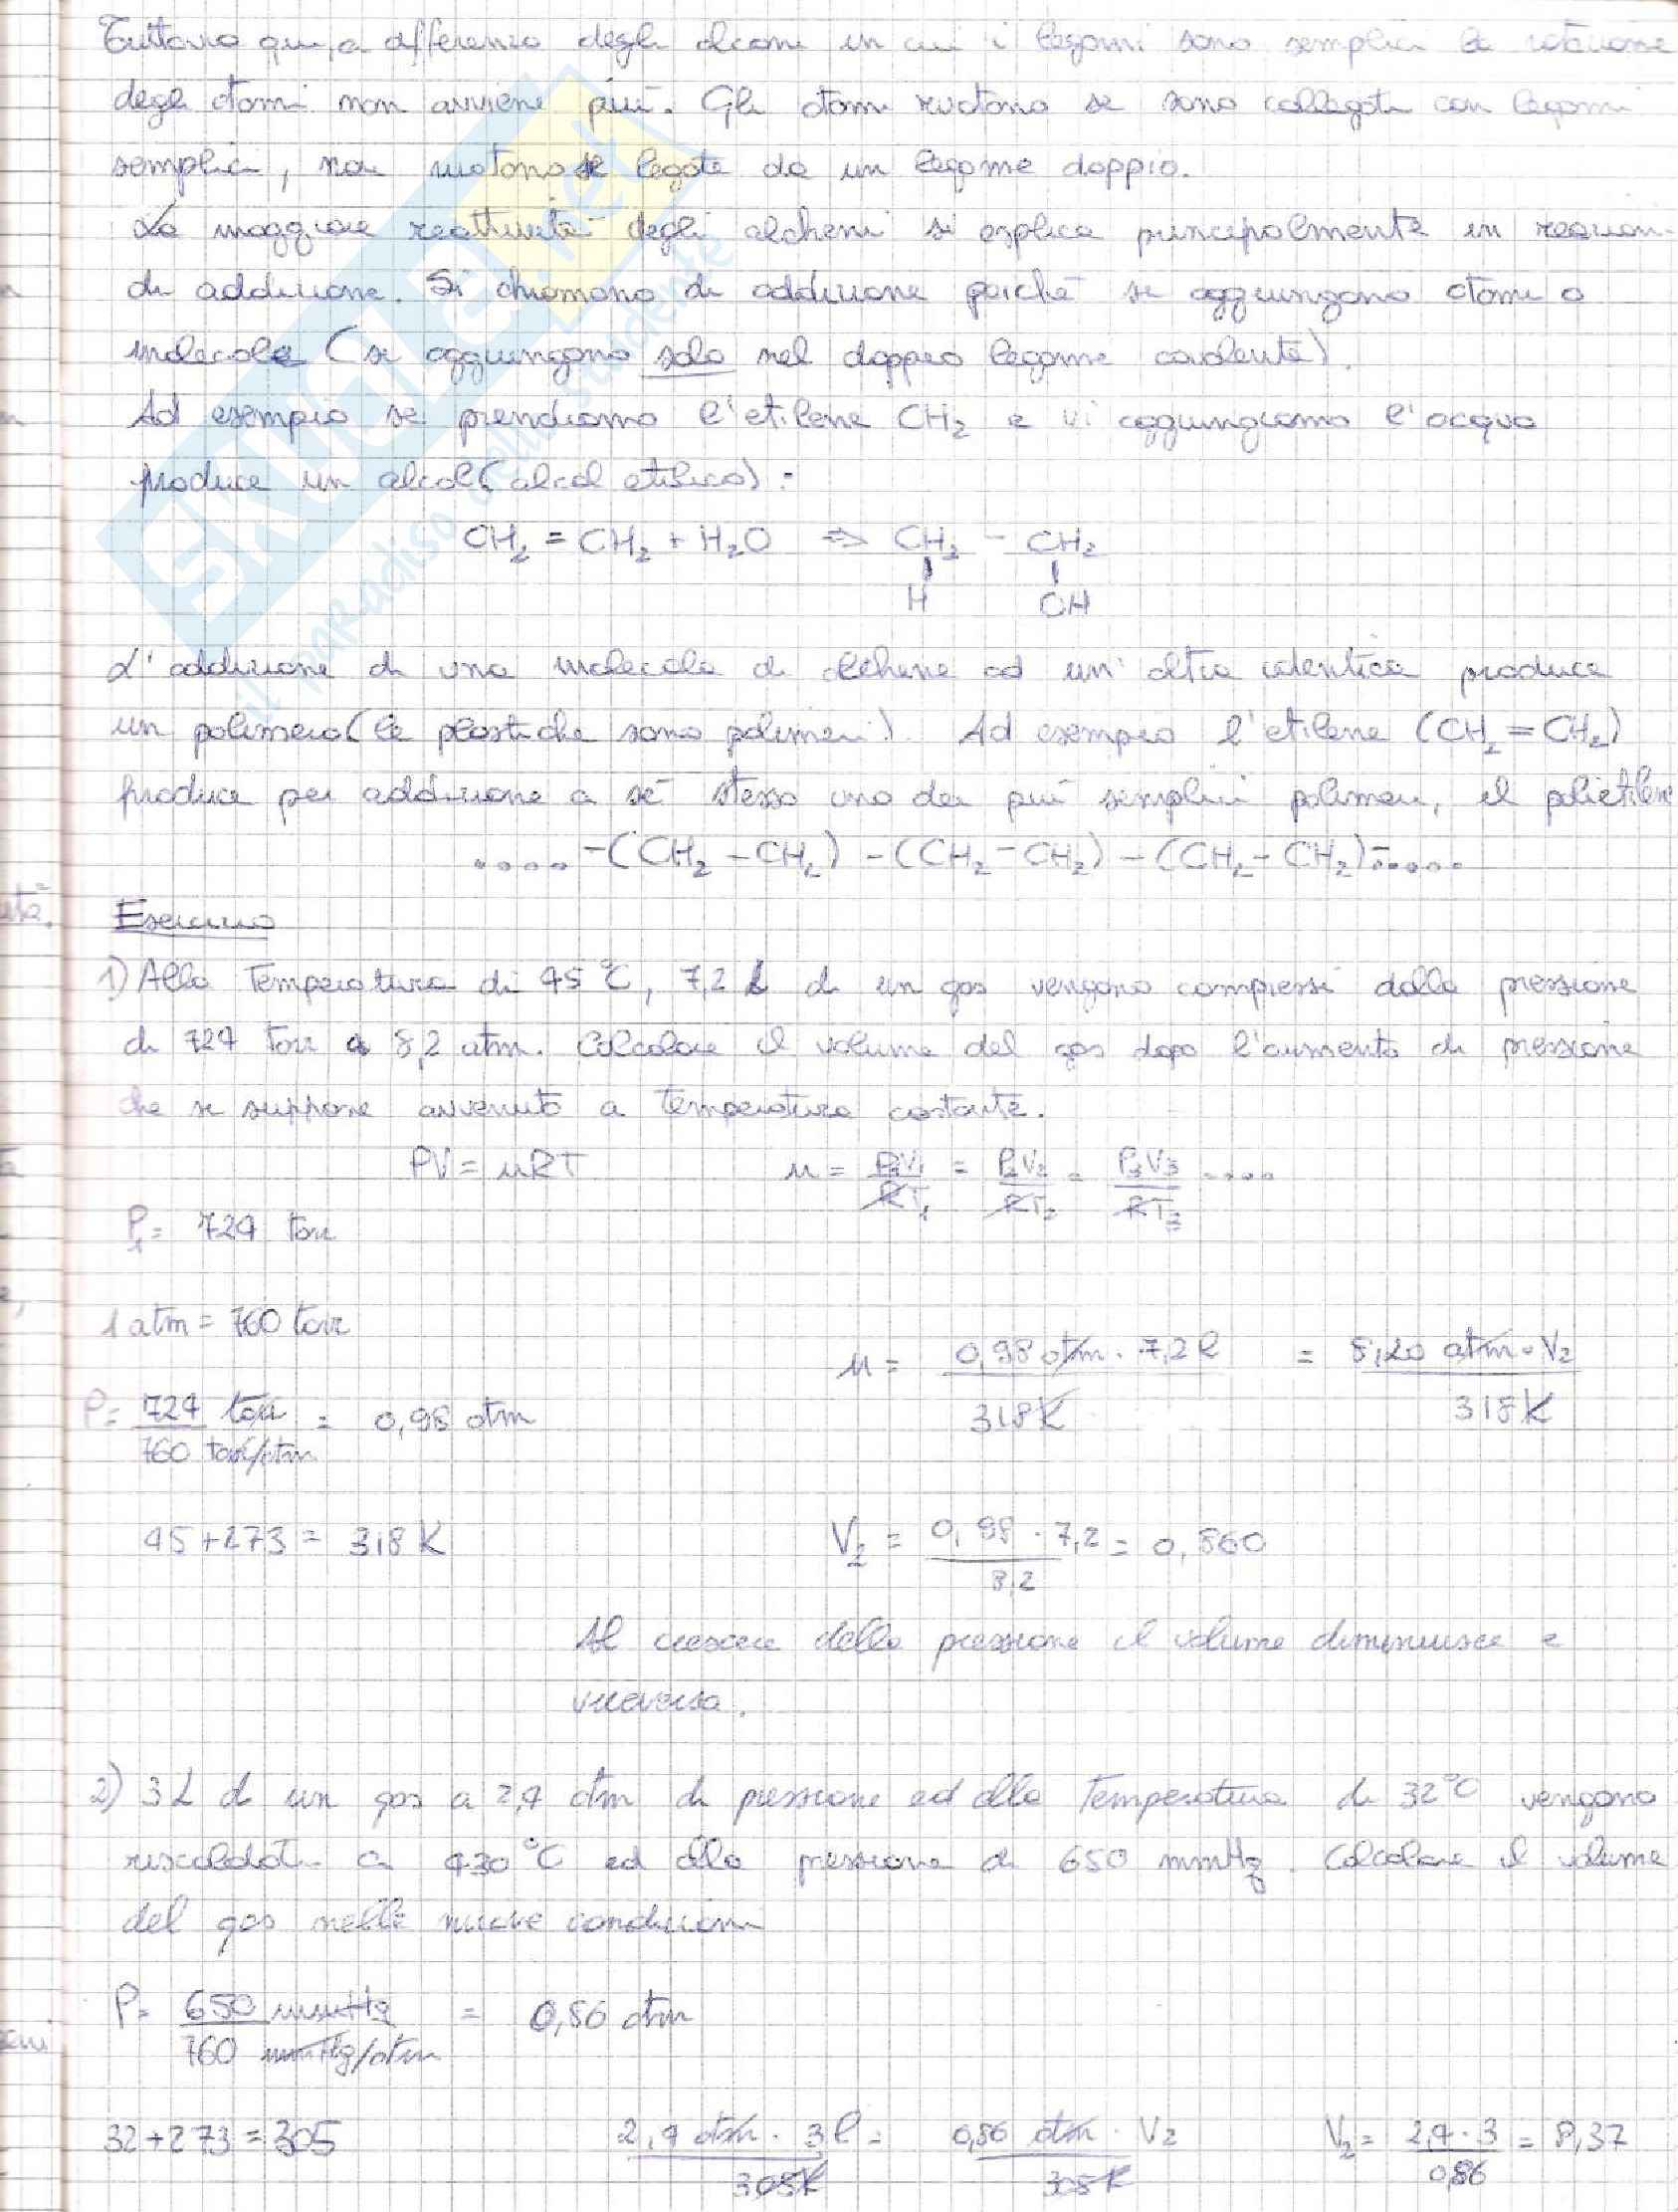 Tuttavia qui, a differenza degli alcani in cui i legami sono semplici la rotazione
degli atomi non avviene più. Gli atomi ruotano se sono collegati con legami
semplici, non ruotano se legate da un legame doppio.
La maggiore reattività degli alcheni si esplica principalmente in reazioni
di addizione. Si chiamano di addizione poichè si aggiungono atomi o
molecole (si aggiungono solo nel doppio legame covalente).
Ad esempio se prendiamo l'etilene CH2 e vi aggiungiamo l'acqua
produce un alcol (alcol etilico):
CH2 = CH2 + H2O => CH2 - CH2
H OH
L'addizione di una molecola di alchene ad un'altra identica produce
un polimero (le plastiche sono polimeri) Ad esempio l'etilene (CH2=CH2)
produce per addizione a sè stesso uno dei più semplici polimeri, il polietilene
.... -(CH2 - CH2) - (CH2 - CH2) - (CH2 - CH2)-.....
Esercizio
1) Alla Temperatura di 45°C, 7,2 L di un gas vengono compressi dalla pressione
di 724 torr a 8,2 atm. Calcolare il volume del gas dopo l'aumento di pressione
che si suppone avvenuto a temperatura costante.
PV = nRT n = P1V1/RT1 = P2V2/RT2 = P3V3/RT3 ....
P1= 724 torr
1 atm = 760 torr
n = 0,98 atm · 7,2 l / 318 K = 8,20 atm · V2 / 318 K
P= 724 torr / 760 torr/atm = 0,98 atm
45+273 = 318 K V2 = 0,98 · 7,2 / 8,2 = 0,860
Al crescere della pressione il volume diminuisce e
viceversa.
2) 3 L di un gas a 2,4 atm di pressione ed alla Temperatura di 32°C vengono
riscaldati a 430°C ed alla pressione di 650 mmHg. Calcolare il volume
del gas nelle nuove condizioni
P= 650 mmHg / 760 mmHg/atm = 0,86 atm
32+273=305 2,4 atm · 3 l / 305 K = 0,86 atm · V2 / 305 K V2= 2,4 · 3 / 0,86 = 8,37
SKUOLA.net
il paradiso dello studente